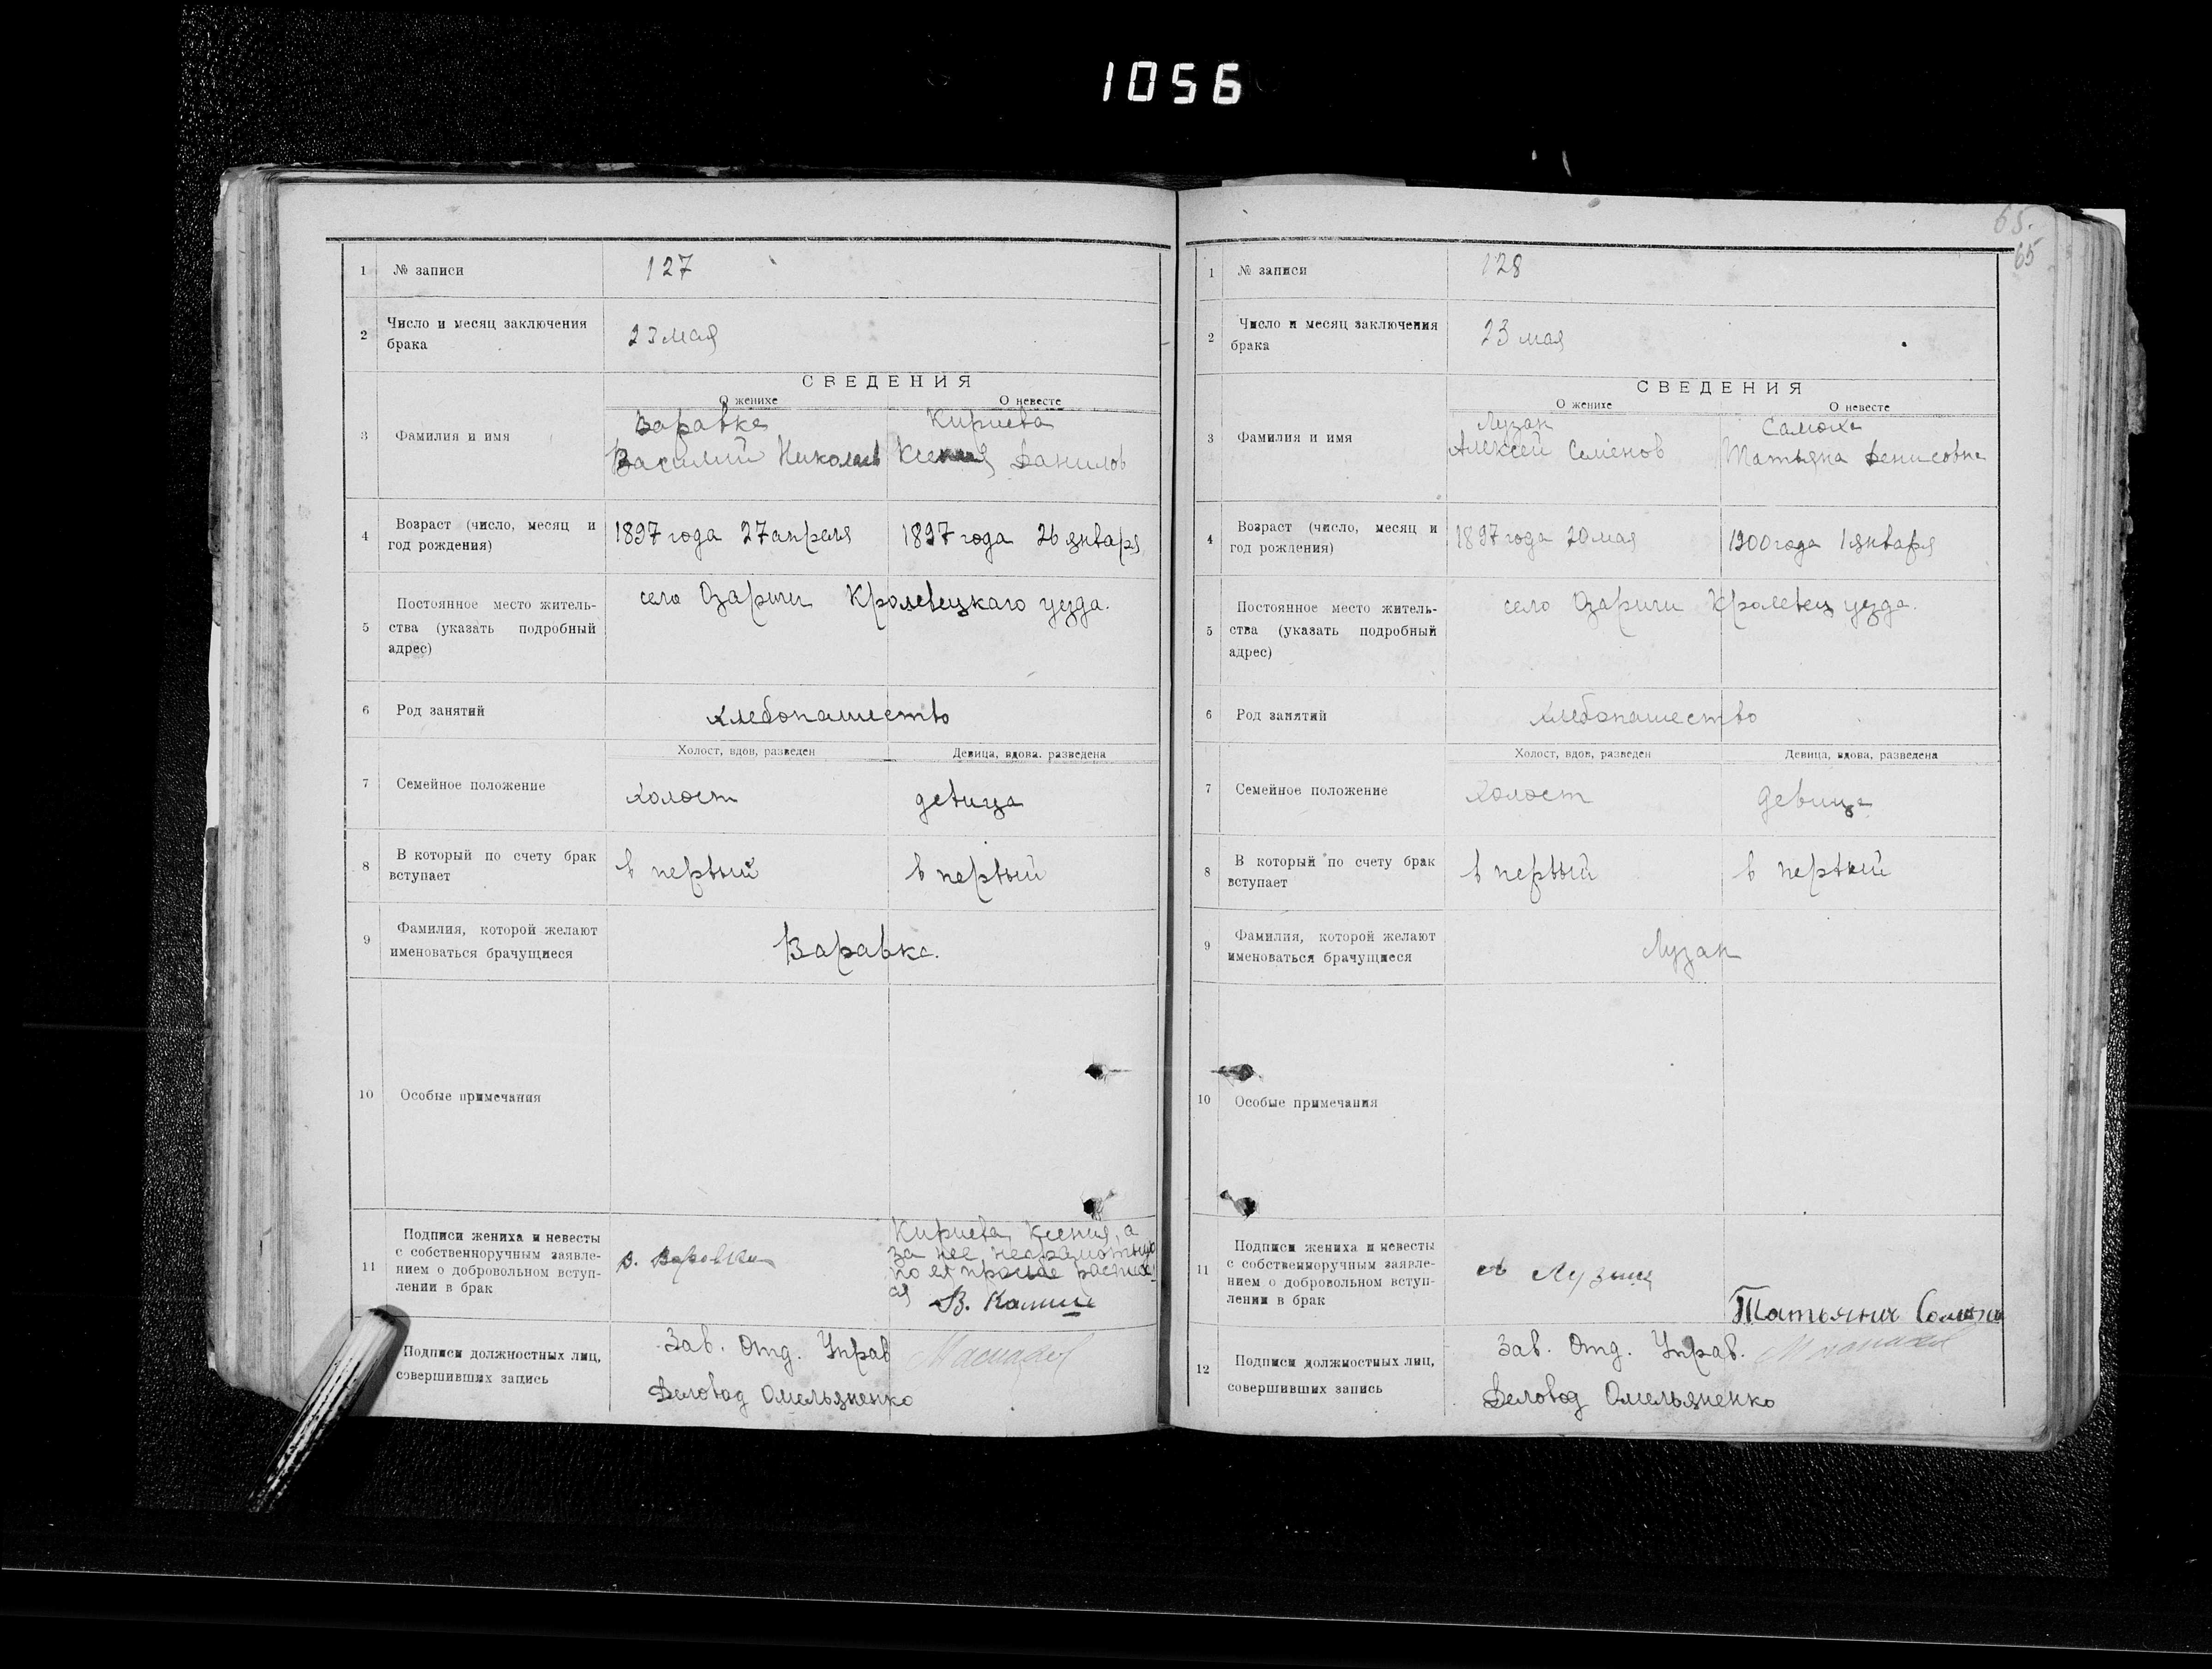 1056
65.
65
1 № записи 127
2 Число и месяц заключения
брака
23 мая
СВЕДЕНИЯ
О женихе О невесте
3 Фамилия и имя
Варавка Кириева
Василий Николаев Ксения Данилов
4 Возраст (число, месяц и
год рождения)
1897 года 27 апреля 1897 года 26 января
5 Постоянное место житель-
ства (указать подробный
адрес)
село Озаричи Кролевецкаго уезда.
6 Род занятий хлебопашество
Холост, вдов, разведен Девица, вдова. разведена
7 Семейное положение холост девица
8 В который по счету брак
вступает
в первый в первый
9 Фамилия, которой желают
именоваться брачущиеся
Варавка.
10 Особые примечания
11 Подписи жениха и невесты
с собственноручным заявле-
нием о добровольном вступ-
лении в брак
В. Варавка
Кириева Ксения, а
за нее неграмотную
по ея просьбе расписал
ся
В.
Подписи должностных лиц,
совершивших запись
Зав. Отд. Управ
Деловод Омельяненко
1 № записи 128
2 Число и месяц заключения
брака
23 мая
СВЕДЕНИЯ
О женихе О невесте
3 Фамилия и имя
Лузан Самоха
Алексей Семенов Татьяна Денисовна
4 Возраст (число, месяц и
год рождения)
1897 года 20 мая 1900 года 1 января
5 Постоянное место житель-
ства (указать подробный
адрес)
село Озаричи Кролевец уезда.
6 Род занятий хлебопашество
Холост, вдов, разведен Девица, вдова, разведена
7 Семейное положение холост девица
8 В который по счету брак
вступает
в первый в первый
9 Фамилия, которой желают
именоваться брачущиеся
Лузан
10 Особые примечания
11 Подписи жениха и невесты
с собственноручным заявле-
нием о добровольном вступ-
лении в брак
А Лузан
Татьяна Самоха
12 Подписи должностных лиц,
совершивших запись
Зав. Отд. Управ.
Деловод Омельяненко